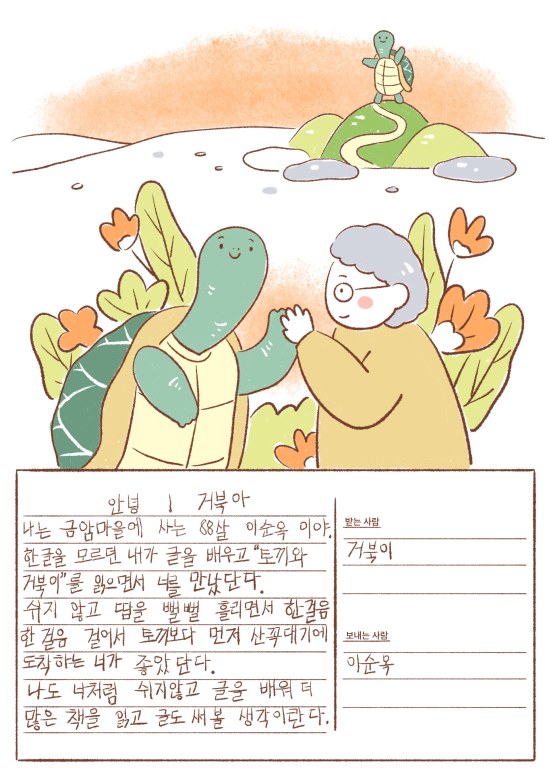 안녕! 거북아
나는 금암마을에 사는 88살 이순옥 이야.
한글을 모르던 내가 글을 배우고 "토끼와
거북이"를 읽으면서 너를 만났단다.
쉬지 않고 땀을 뻘뻘 흘리면서 한걸음
한걸음 걸어서 토끼보다 먼저 산꼭대기에
도착하는 너가 좋았단다.
나도 너처럼 쉬지않고 글을 배워 더
많은 책을 읽고 글도 써볼 생각이란다.
받는 사람
거북이
보내는 사람
이순옥